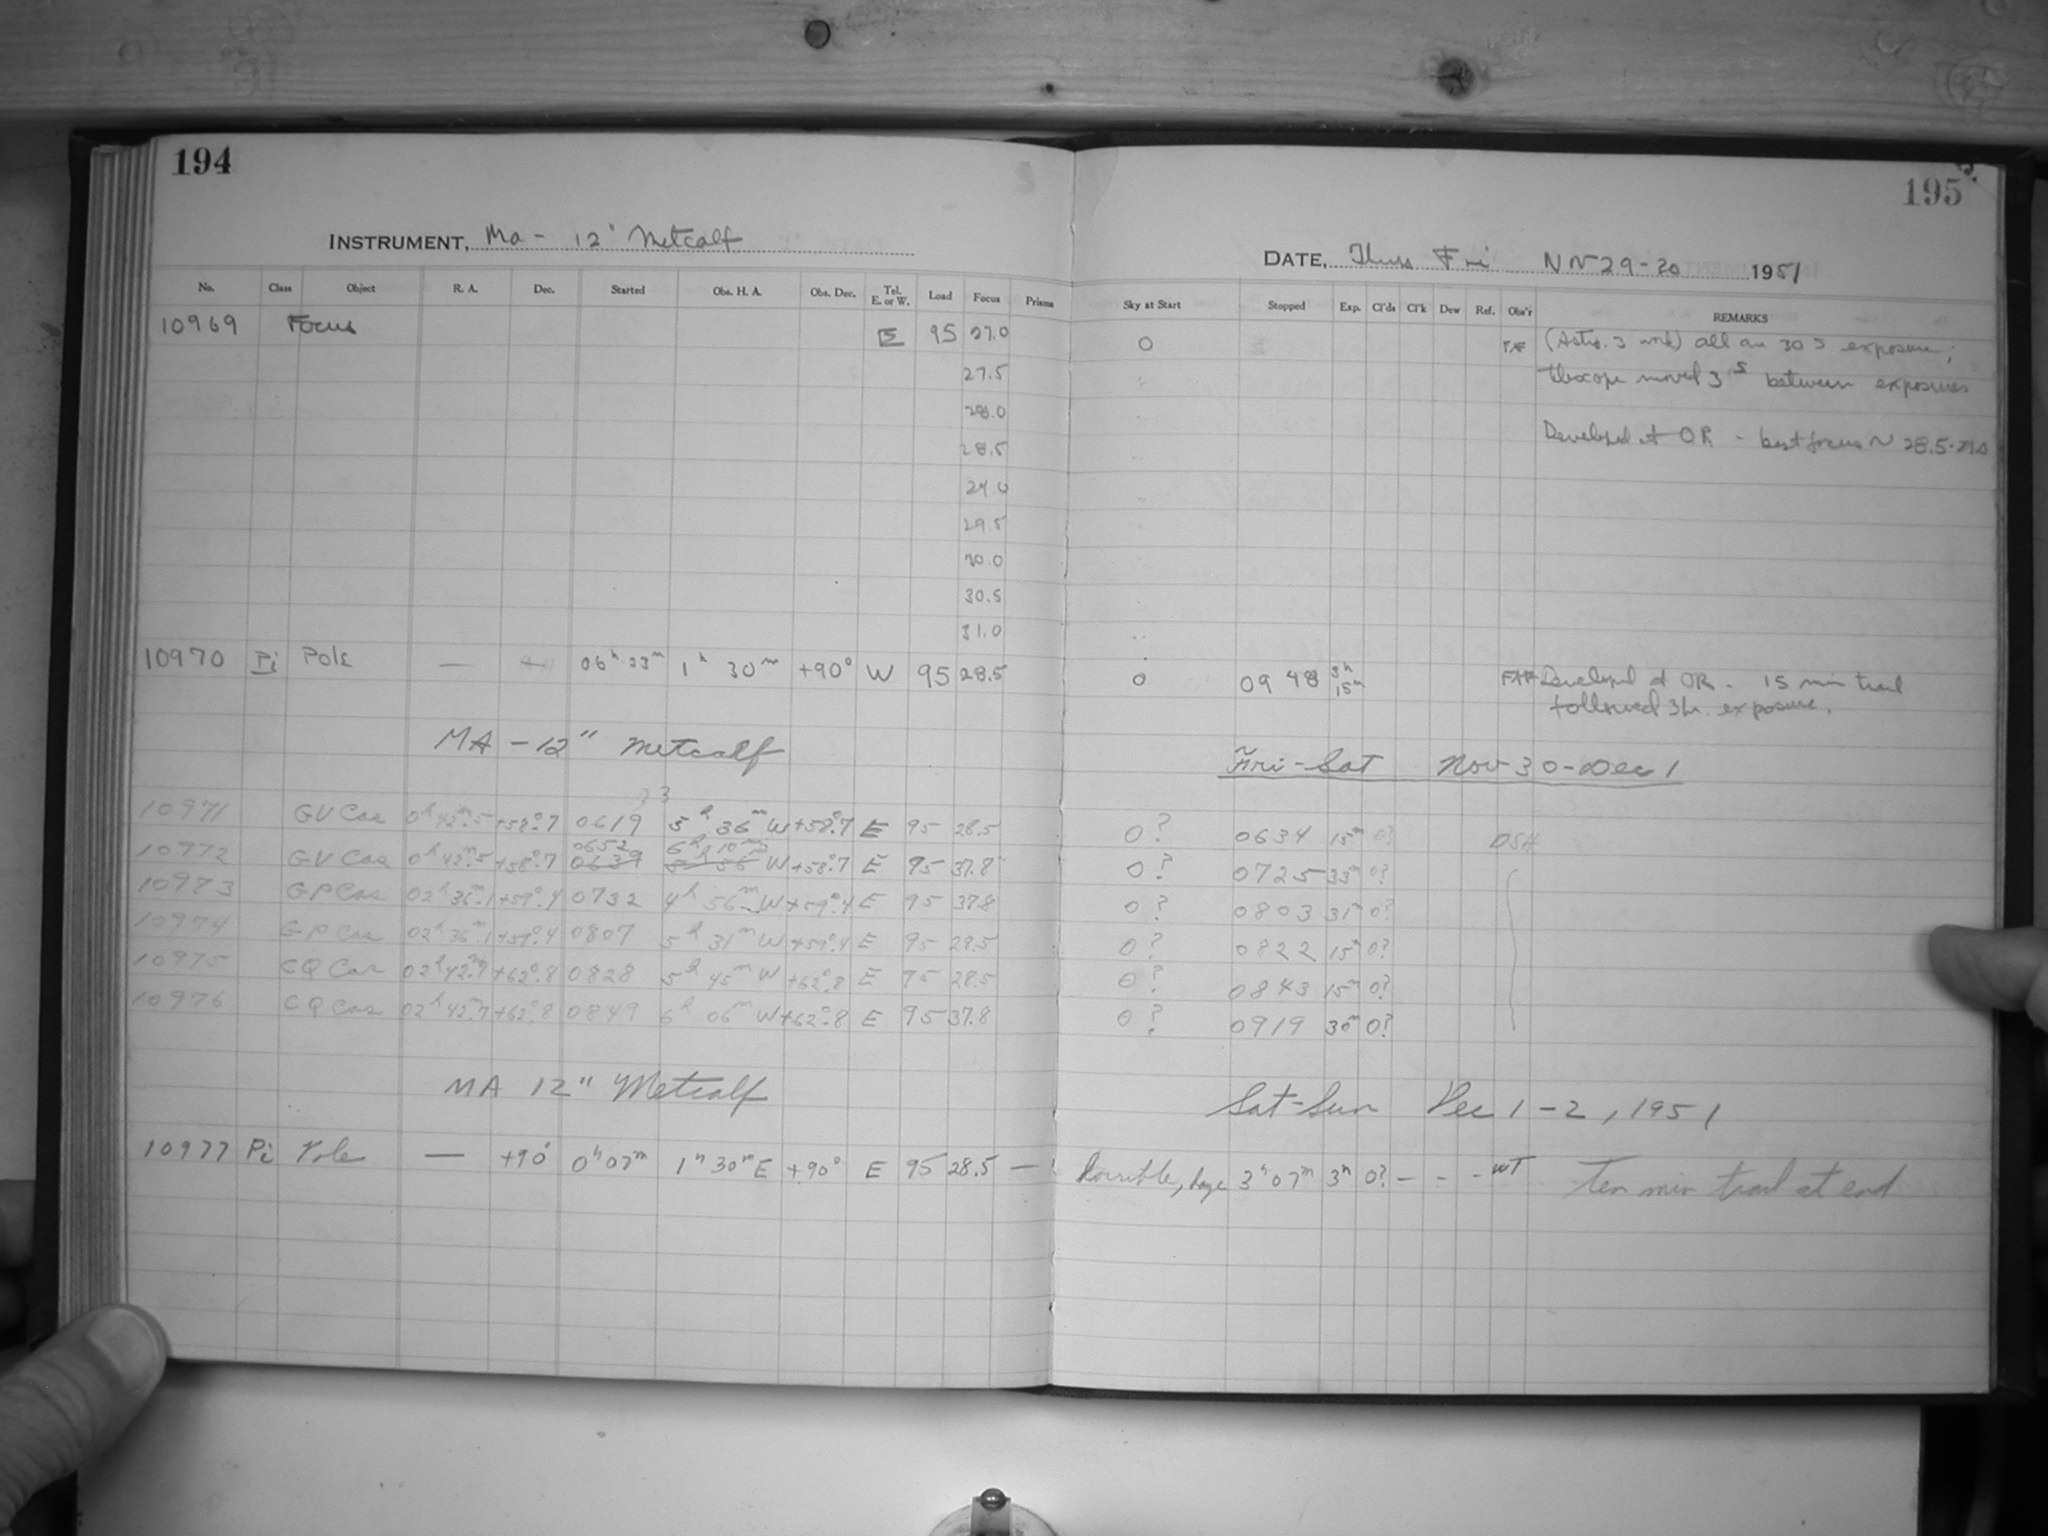 194
195
INSTRUMENT, Ma - 12" Metcalf
DATE, Thurs Fri Nov 29-30 1951
No. Class Object R. A. Dec. Started Obs. H. A. Obs. Dec. Tel. E. or W. Load Focus Prisms Sky at Start Stopped Exp. Cl'ds Cl'k Dew Ref. Obs'r REMARKS
10969 Focus E 95 27.0 O (Astro. 3 wrk) all are 30 s exposure;
27.5 telescope moved 3 s between exposures
28.0
28.5 Developed at OR - best focus ~ 28.5-29.0
29.0
29.5
30.0
30.5
31.0
10970 Pi Pole — — 06h 33m 1h 30m +90° W 95 28.5 O 09 48 3h 15m Developed at OR - 15 min trail
followed 3 hr. exposure.
MA - 12" Metcalf Fri-Sat Nov 30-Dec 1
10971 GV Cas 0h 42m.5 +58°.7 0619 5h 36m W +58°.7 E 95 28.5 O? 0634 15m O? DSH
0652 6h 10m
10972 GV Cas 0h 42m.5 +58°.7 0639 W +58°.7 E 95 37.8 O? 0725 33m O?
10973 GP Cas 02h 36m.1 +59°.4 0732 4h 56m W +59°.4 E 95 37.8 O? 0803 31m O?
10974 GP Cas 02h 36m.1 +59°.4 0807 5h 31m W +59°.4 E 95 28.5 O? 0822 15m O?
10975 CQ Cas 02h 42m.7 +62°.8 0828 5h 45m W +62°.8 E 95 28.5 O? 0843 15m O?
10976 CQ Cas 02h 42m.7 +62°.8 0849 6h 06m W +62°.8 E 95 37.8 O? 0919 30m O?
MA 12" Metcalf Sat-Sun Dec 1-2, 1951
10977 Pi Pole — +90° 0h 07m 1h 30m E +90° E 95 28.5 — horrible, haze 3h 07m 3h O? - - - WT Ten min trail at end